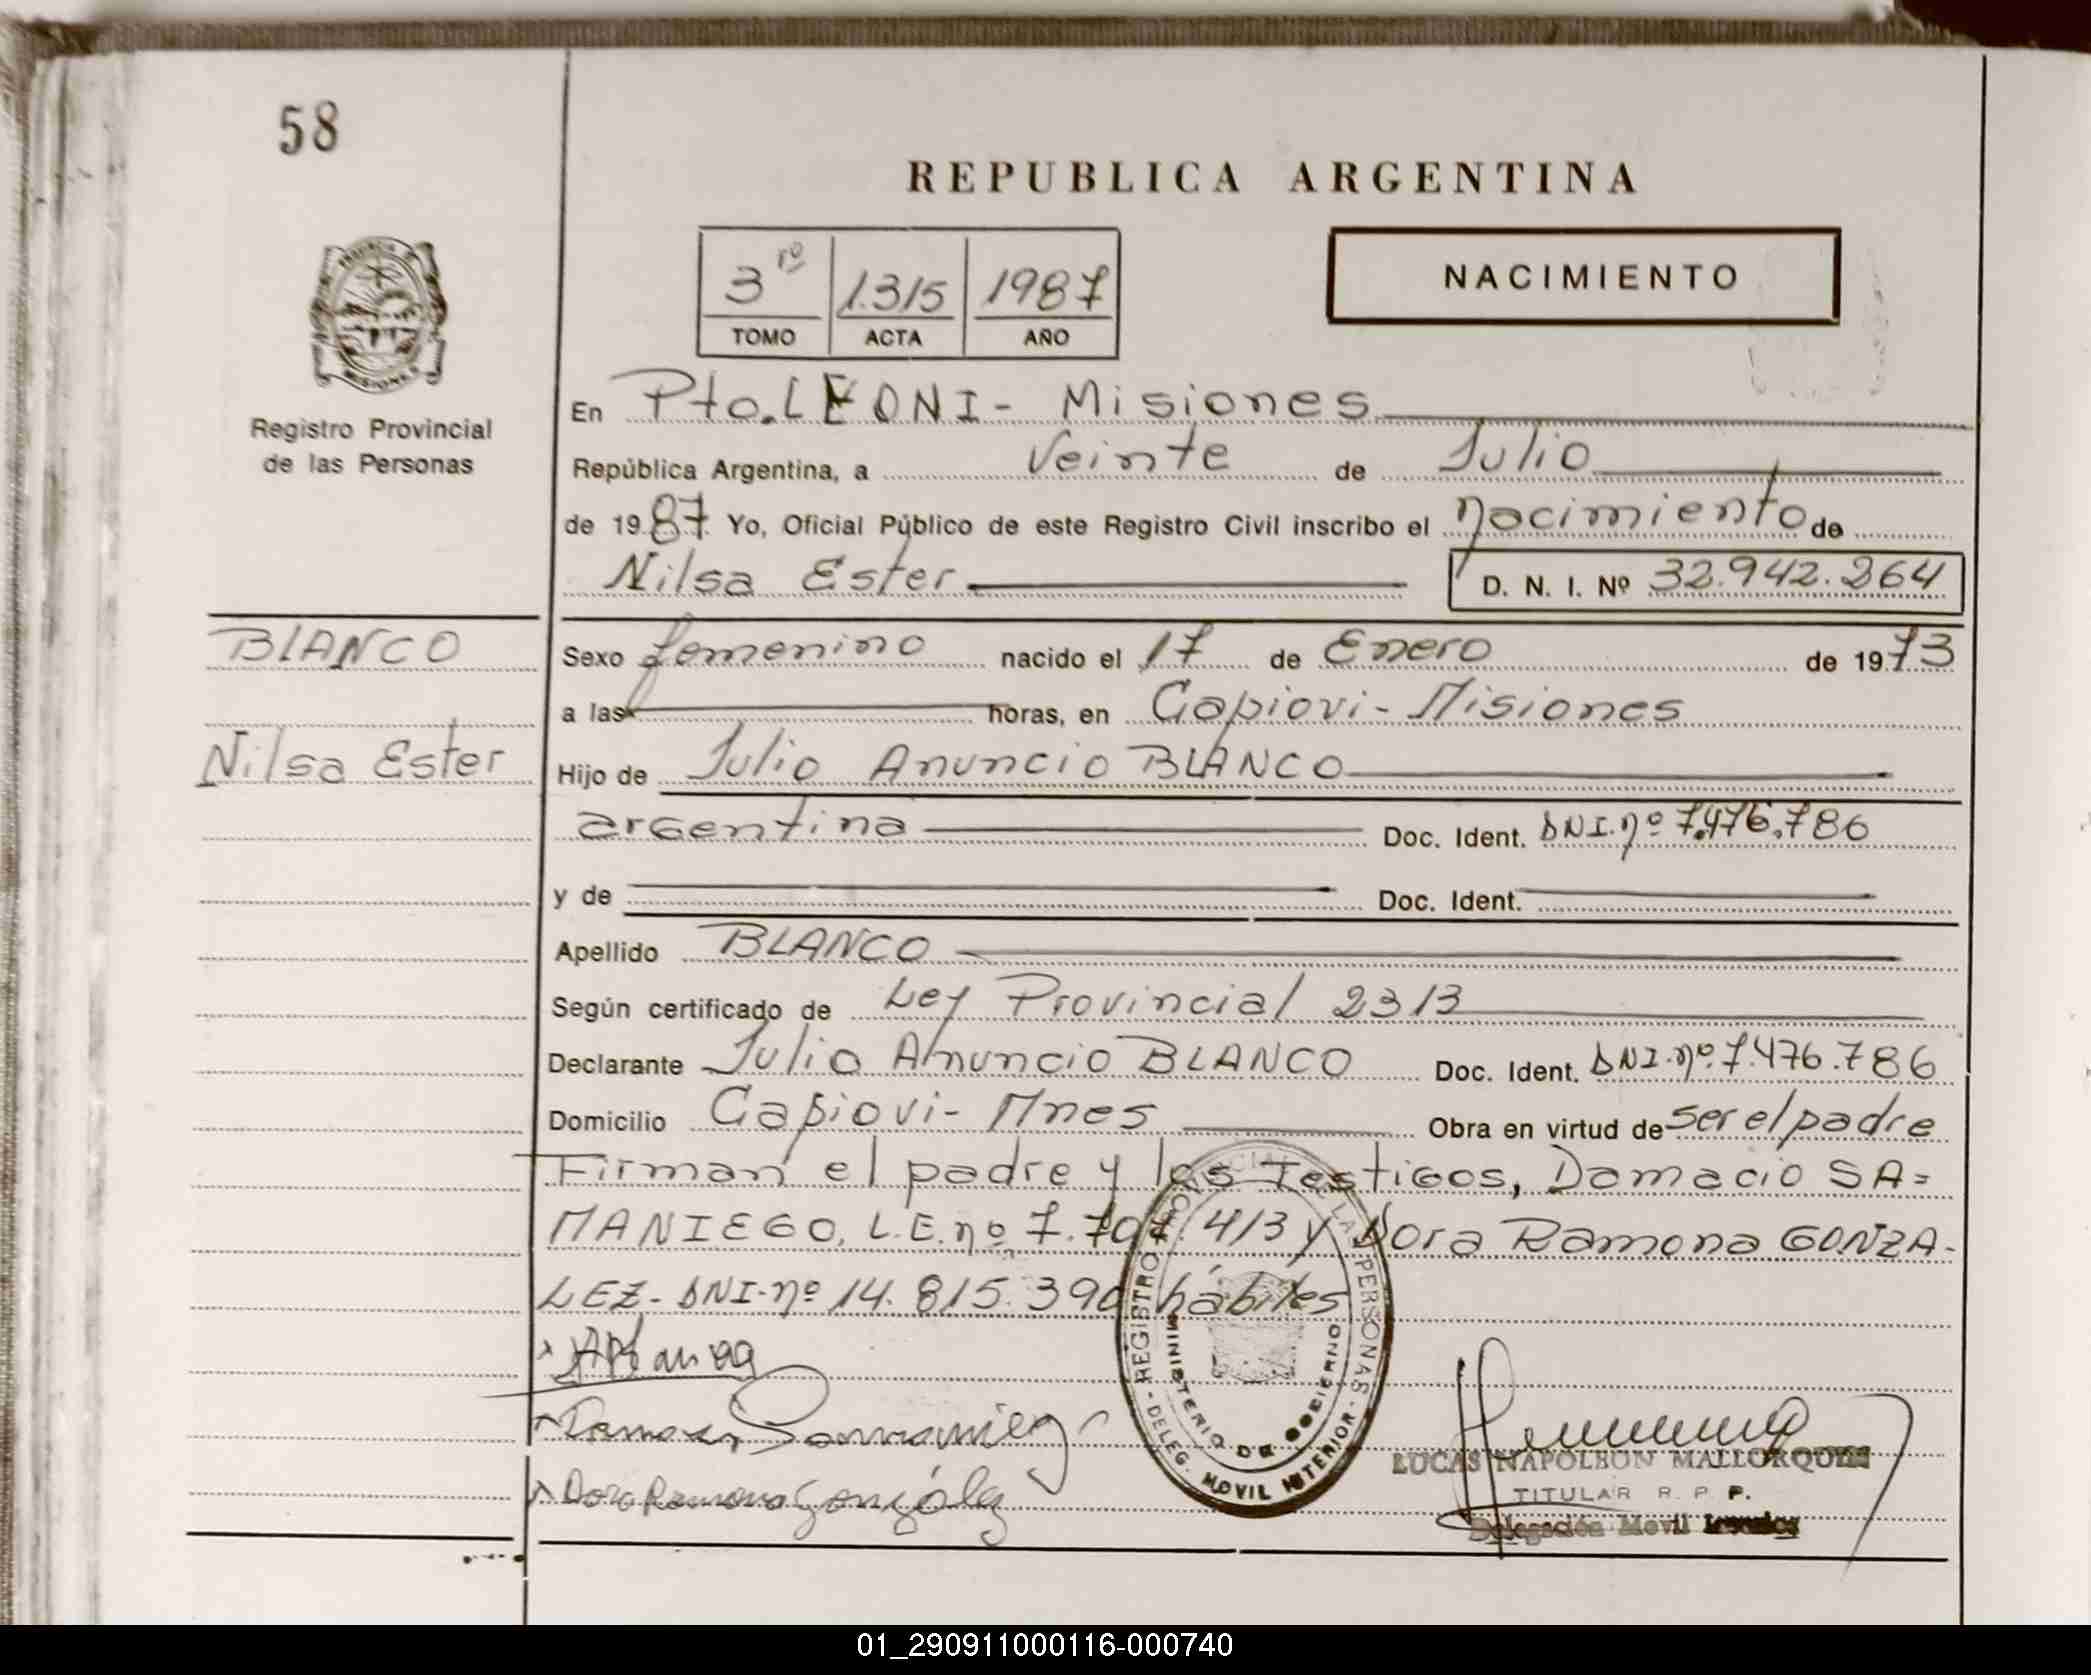 58
REPUBLICA ARGENTINA
3ro 1.315 1987
TOMO ACTA AÑO
NACIMIENTO
PROVINCIA
MISIONES
Registro Provincial
de las Personas
En Pto. LEONI - Misiones
República Argentina, a Veinte de Julio
de 1987 Yo, Oficial Público de este Registro Civil inscribo el nacimiento de
Nilsa Ester D. N. I. Nº 32.942.264
BLANCO
Nilsa Ester
Sexo femenino nacido el 17 de Enero de 1973
a las horas, en Capiovi - Misiones
Hijo de Julio Anuncio BLANCO
argentina Doc. Ident. DNI. nº 7.476.786
y de Doc. Ident.
Apellido BLANCO
Según certificado de Ley Provincial 2313
Declarante Julio Anuncio BLANCO Doc. Ident. DNI. nº. 7.476.786
Domicilio Capiovi - Mnes Obra en virtud de ser el padre
Firman el padre y los testigos, Damacio SA=
MANIEGO, L.E. nº 7. 413 y Dora Ramona GONZA-
LEZ - DNI - nº 14.815.390 hábiles
Dora Ramona González
REGISTRO PROVINCIAL DE LAS PERSONAS
MINISTERIO DE GOBIERNO
- DELEG. MOVIL INTERIOR -
LUCAS NAPOLEON MALLORQUIN
TITULAR R. P. P.
Delegación Movil
01_290911000116-000740